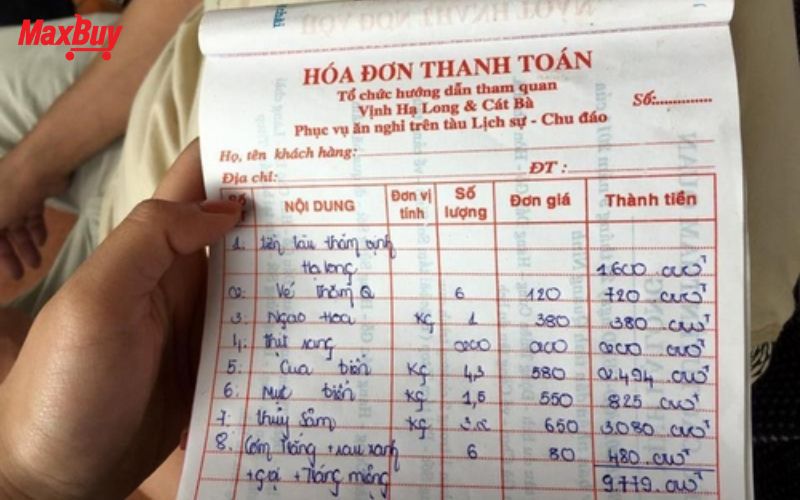 MaxBuy
HÓA ĐƠN THANH TOÁN
Tổ chức hướng dẫn tham quan
Vịnh Hạ Long & Cát Bà
Số:
Phục vụ ăn nghỉ trên tàu Lịch sự - Chu đáo
Họ, tên khách hàng:
Địa chỉ: ĐT :
Số NỘI DUNG Đơn vị tính Số lượng Đơn giá Thành tiền
1. tiền tàu thăm vịnh
Hạ long 1.600.000đ
2. Vé thăm Q 6 120 720.000đ
3. Ngao Hoa kg 1 380 380.000đ
4. thịt rang 200 200 200.000đ
5. Cua biển kg 4,3 580 2.494.000đ
6. Mực biển kg 1,5 550 825.000đ
7. Thủy Sâm kg 650 3.080.000đ
8. Cơm trắng + rau xanh 6 80 480.000đ
+ + tráng miệng 9779.000đ